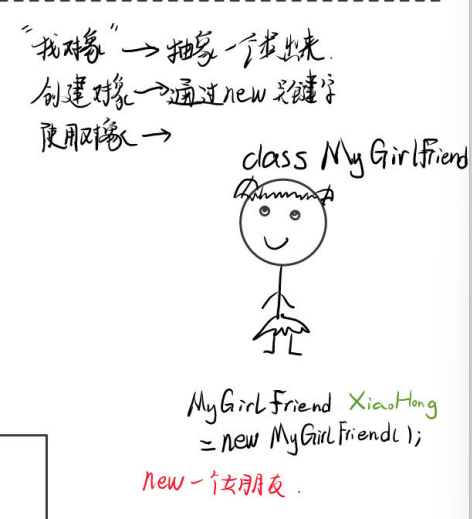 “找对象” → 抽象一个类出来.
创建对象 → 通过new 关键字
使用对象 →
class MyGirlfriend
MyGirlFriend XiaoHong
= new MyGirlFriend();
new 一个女朋友.